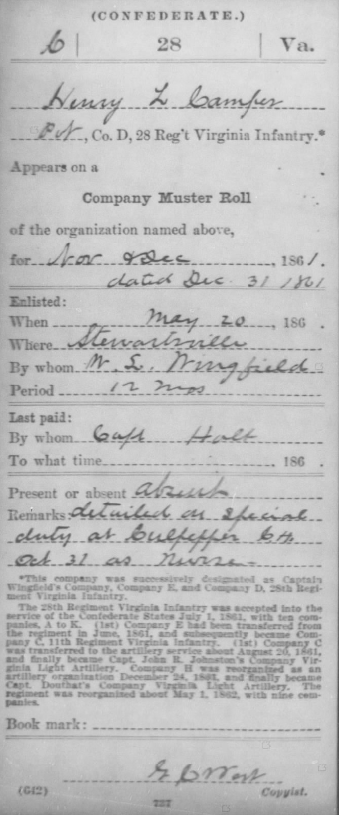 (CONFEDERATE.)
C | 28 | Va.
Henry L Camper
Pvt, Co. D, 28 Reg't Virginia Infantry.*
Appears on a
Company Muster Roll
of the organization named above,
for Nov & Dec, 1861.
dated Dec. 31 1861
Enlisted:
When May 20, 186 .
Where Stewartsville
By whom W. L. Wingfield
Period 12 mos
Last paid:
By whom Capt Holt
To what time 186 .
Present or absent absent
Remarks detailed on special
duty at Culpepper C H
Oct 31 as Nurse-
*This company was successively designated as Captain
Wingfield's Company, Company E, and Company D, 28th Regi-
ment Virginia Infantry.
The 28th Regiment Virginia Infantry was accepted into the
service of the Confederate States July 1, 1861, with ten com-
panies, A to K. (1st) Company E had been transferred from
the regiment in June, 1861, and subsequently became Com-
pany C, 11th Regiment Virginia Infantry. (1st) Company C
was transferred to the artillery service about August 20, 1861,
and finally became Capt. John R. Johnston's Company Vir-
ginia Light Artillery. Company H was reorganized as an
artillery organization December 24, 1861, and finally became
Capt. Douthat's Company Virginia Light Artillery. The
regiment was reorganized about May 1, 1862, with nine com-
panies.
Book mark:
G C West
(642) Copyist.
737